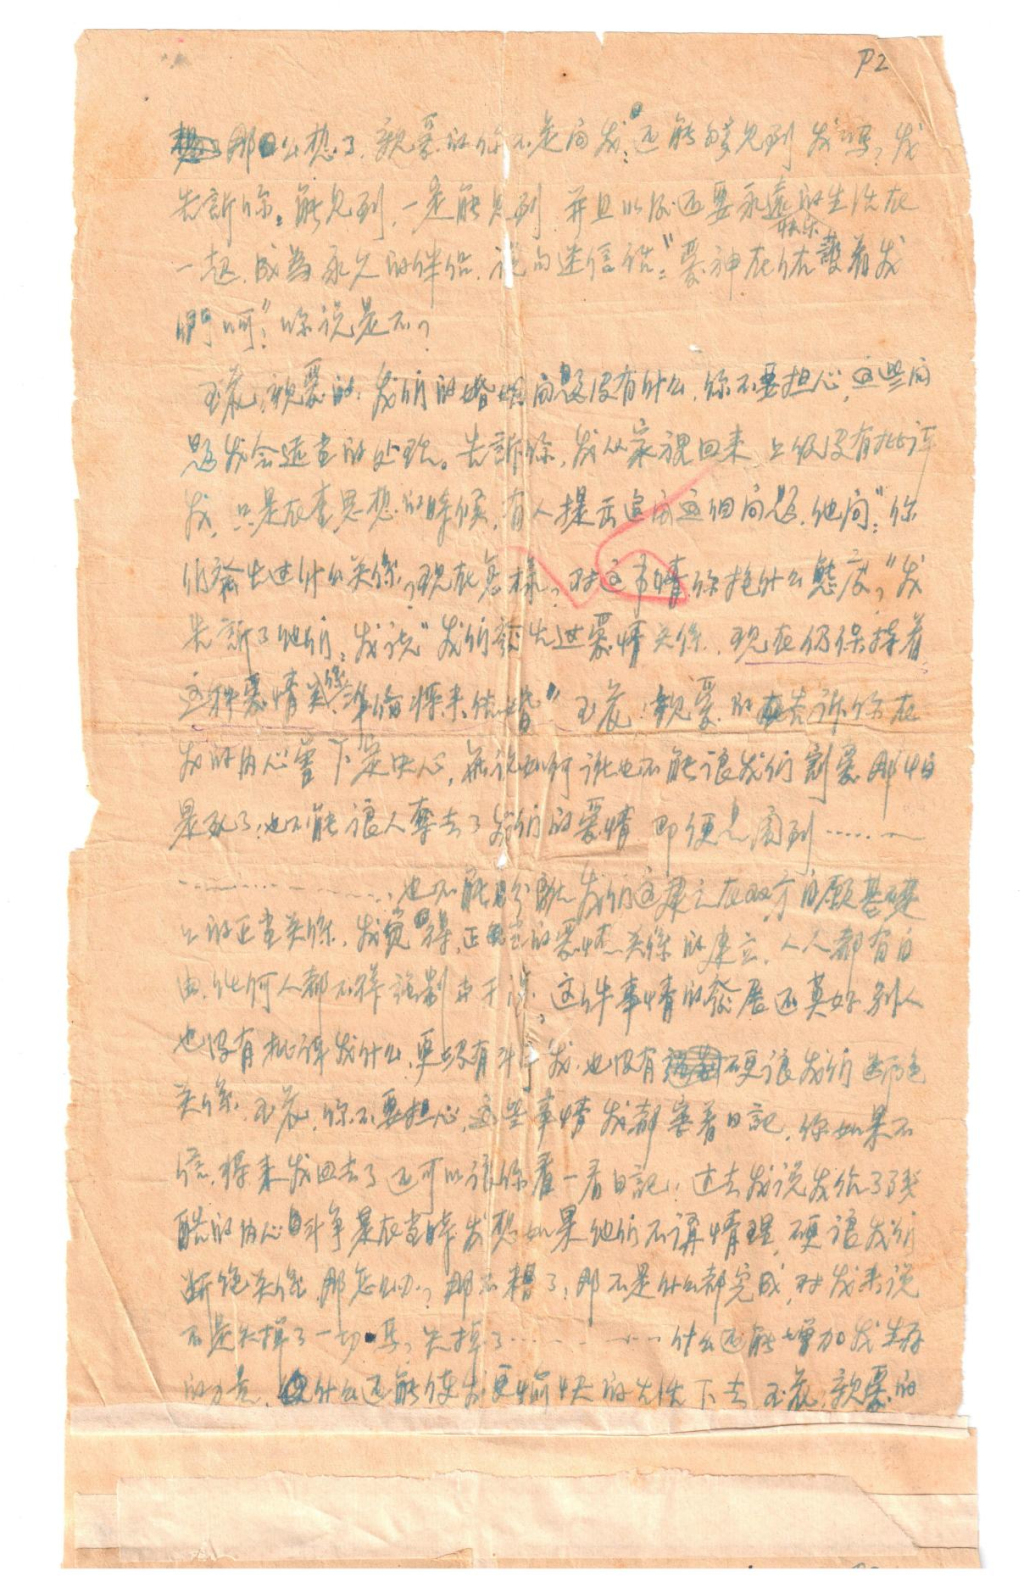 P2
那么想了，親爱的你不是问我："还能够見到我吗？我
告訴你：能見到，一定能見到，并且以后还要永遠的生活在
快乐
一起，成為永久的伴侣，说句迷信话："爱神在保護着我
們呵！"你说是不？
親爱的，我们的婚姻问題没有什么，你不要担心，这些问
題我会适当的处理。告訴你，我从家視回来上级没有批评
我，只是在查思想的時候，有人提出追问这個问題，他问："你
们發生过什么关係，现在怎樣，对这事情你抱什么態度，"我
告訴了他们，我说"我们發生过爱情关係，现在仍保持着
这种爱情关係準备将来结婚"親爱的告诉你在
我的内心里下定决心，無论如何谁也不能讓我们割爱那怕
是死了，也不能讓人奪去了我们的爱情即便
也不能分離我们这建立在双方自願基礎
上的正當关係，我觉得，正當的爱情关係的建立，人人都有自
由，任何人都不能强制与干涉，这件事情的發展还真好别人
也没有批评我什么，更没有斗争我，也没有硬讓我们断绝
关係，你不要担心，这些事情我都寫着日記，你如果不
信，将来我回去了还可以讓你看一看日記，过去我说发给了
酷的内心斗争是在当時我想如果他们不講情理，硬讓我们
断绝关係，那怎么办，那不糟了，那不是什么都完成，对我来说
不是失掉了一切吗，失掉了……什么还能增加我生存
的力量，什么还能使我更愉快的生活下去親爱的